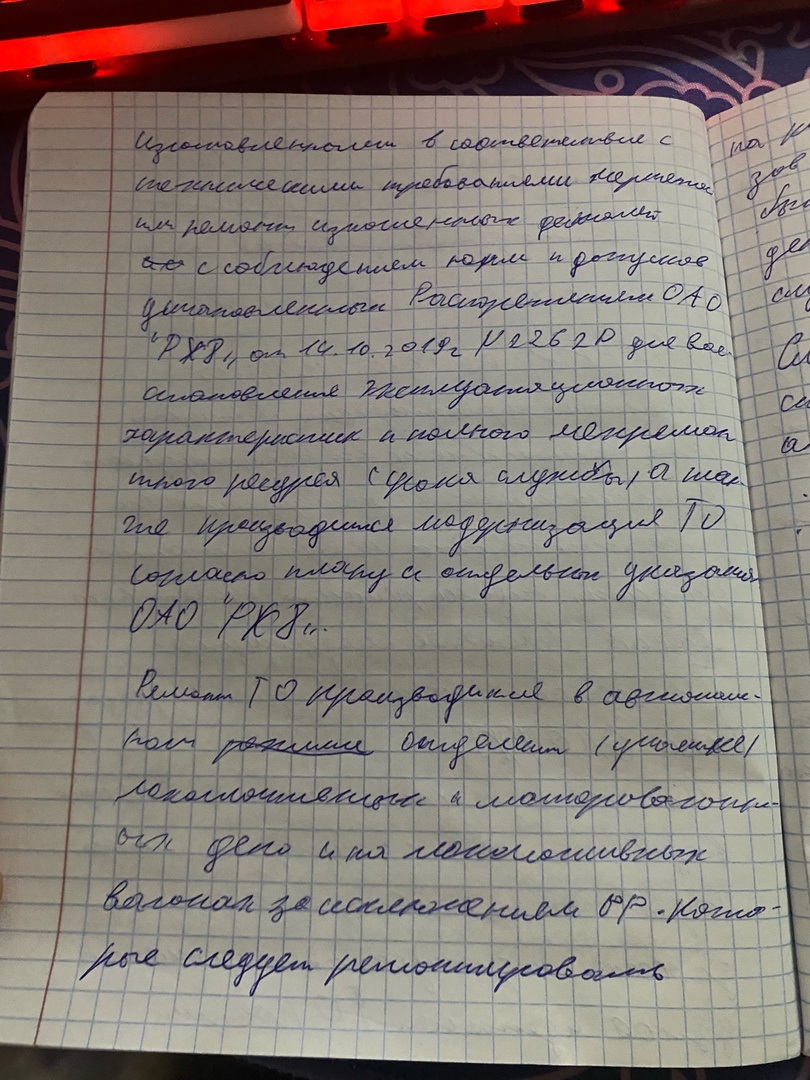 Изготовленными в соответствие с
техническими требованиями чертежа
или ремонт изношенных деталей
с соблюдением норм и допусков
установленных Распоряжением ОАО
"РЖД" от 14.10.2019г N2262Р для вос-
становления эксплуатационных
характеристик и полного межремон
тного ресурса (срока службы) а так-
же производится модернизация ТО
согласно плану и отдельных указания
ОАО "РЖД".
Ремонт ТО производится в автоном-
ном отделении (участке)
локомотивных и моторовагонн-
ых депо и на локомотивных
вагонах за исключением КР. Кото-
рые следует ремонтировать
на
зов
бы
де
слу
Сл
си
а